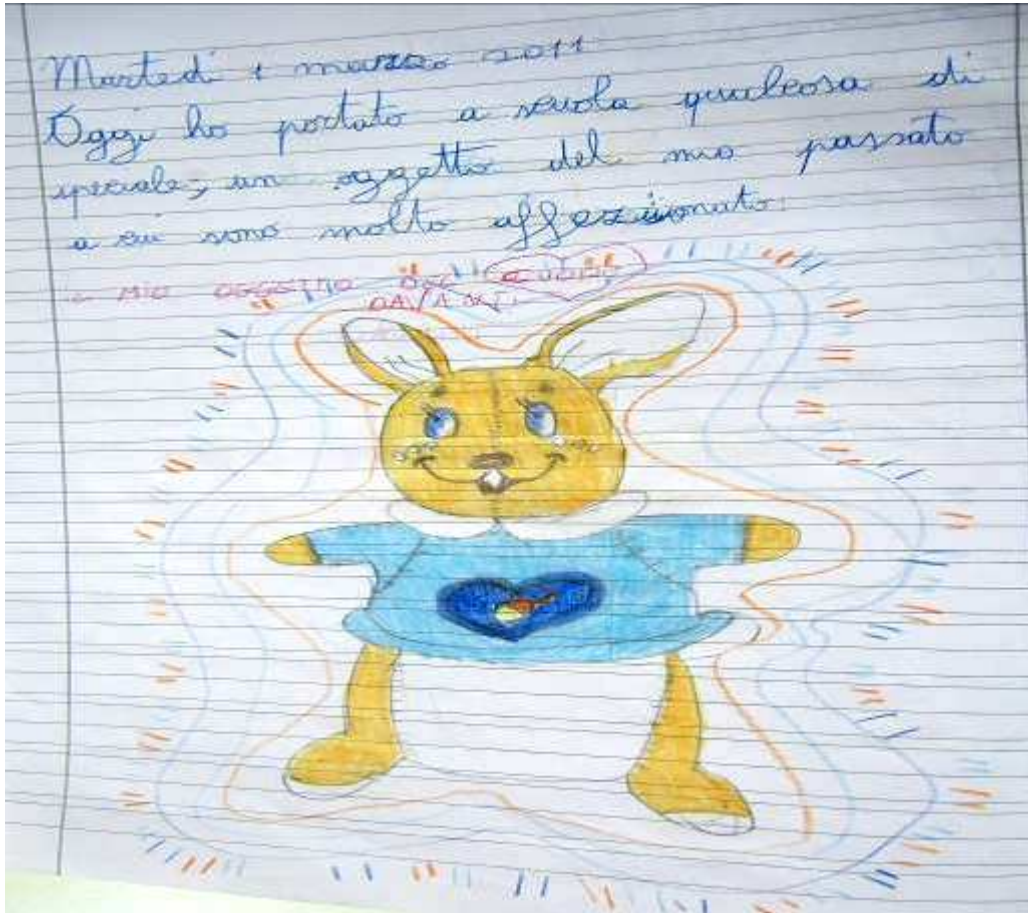 Martedì 1 marzo 2011
Oggi ho portato a scuola qualcosa di
speciale, un oggetto del mio passato
a cui sono molto affezzionato:
MIO OGGETTO
DAVANTI